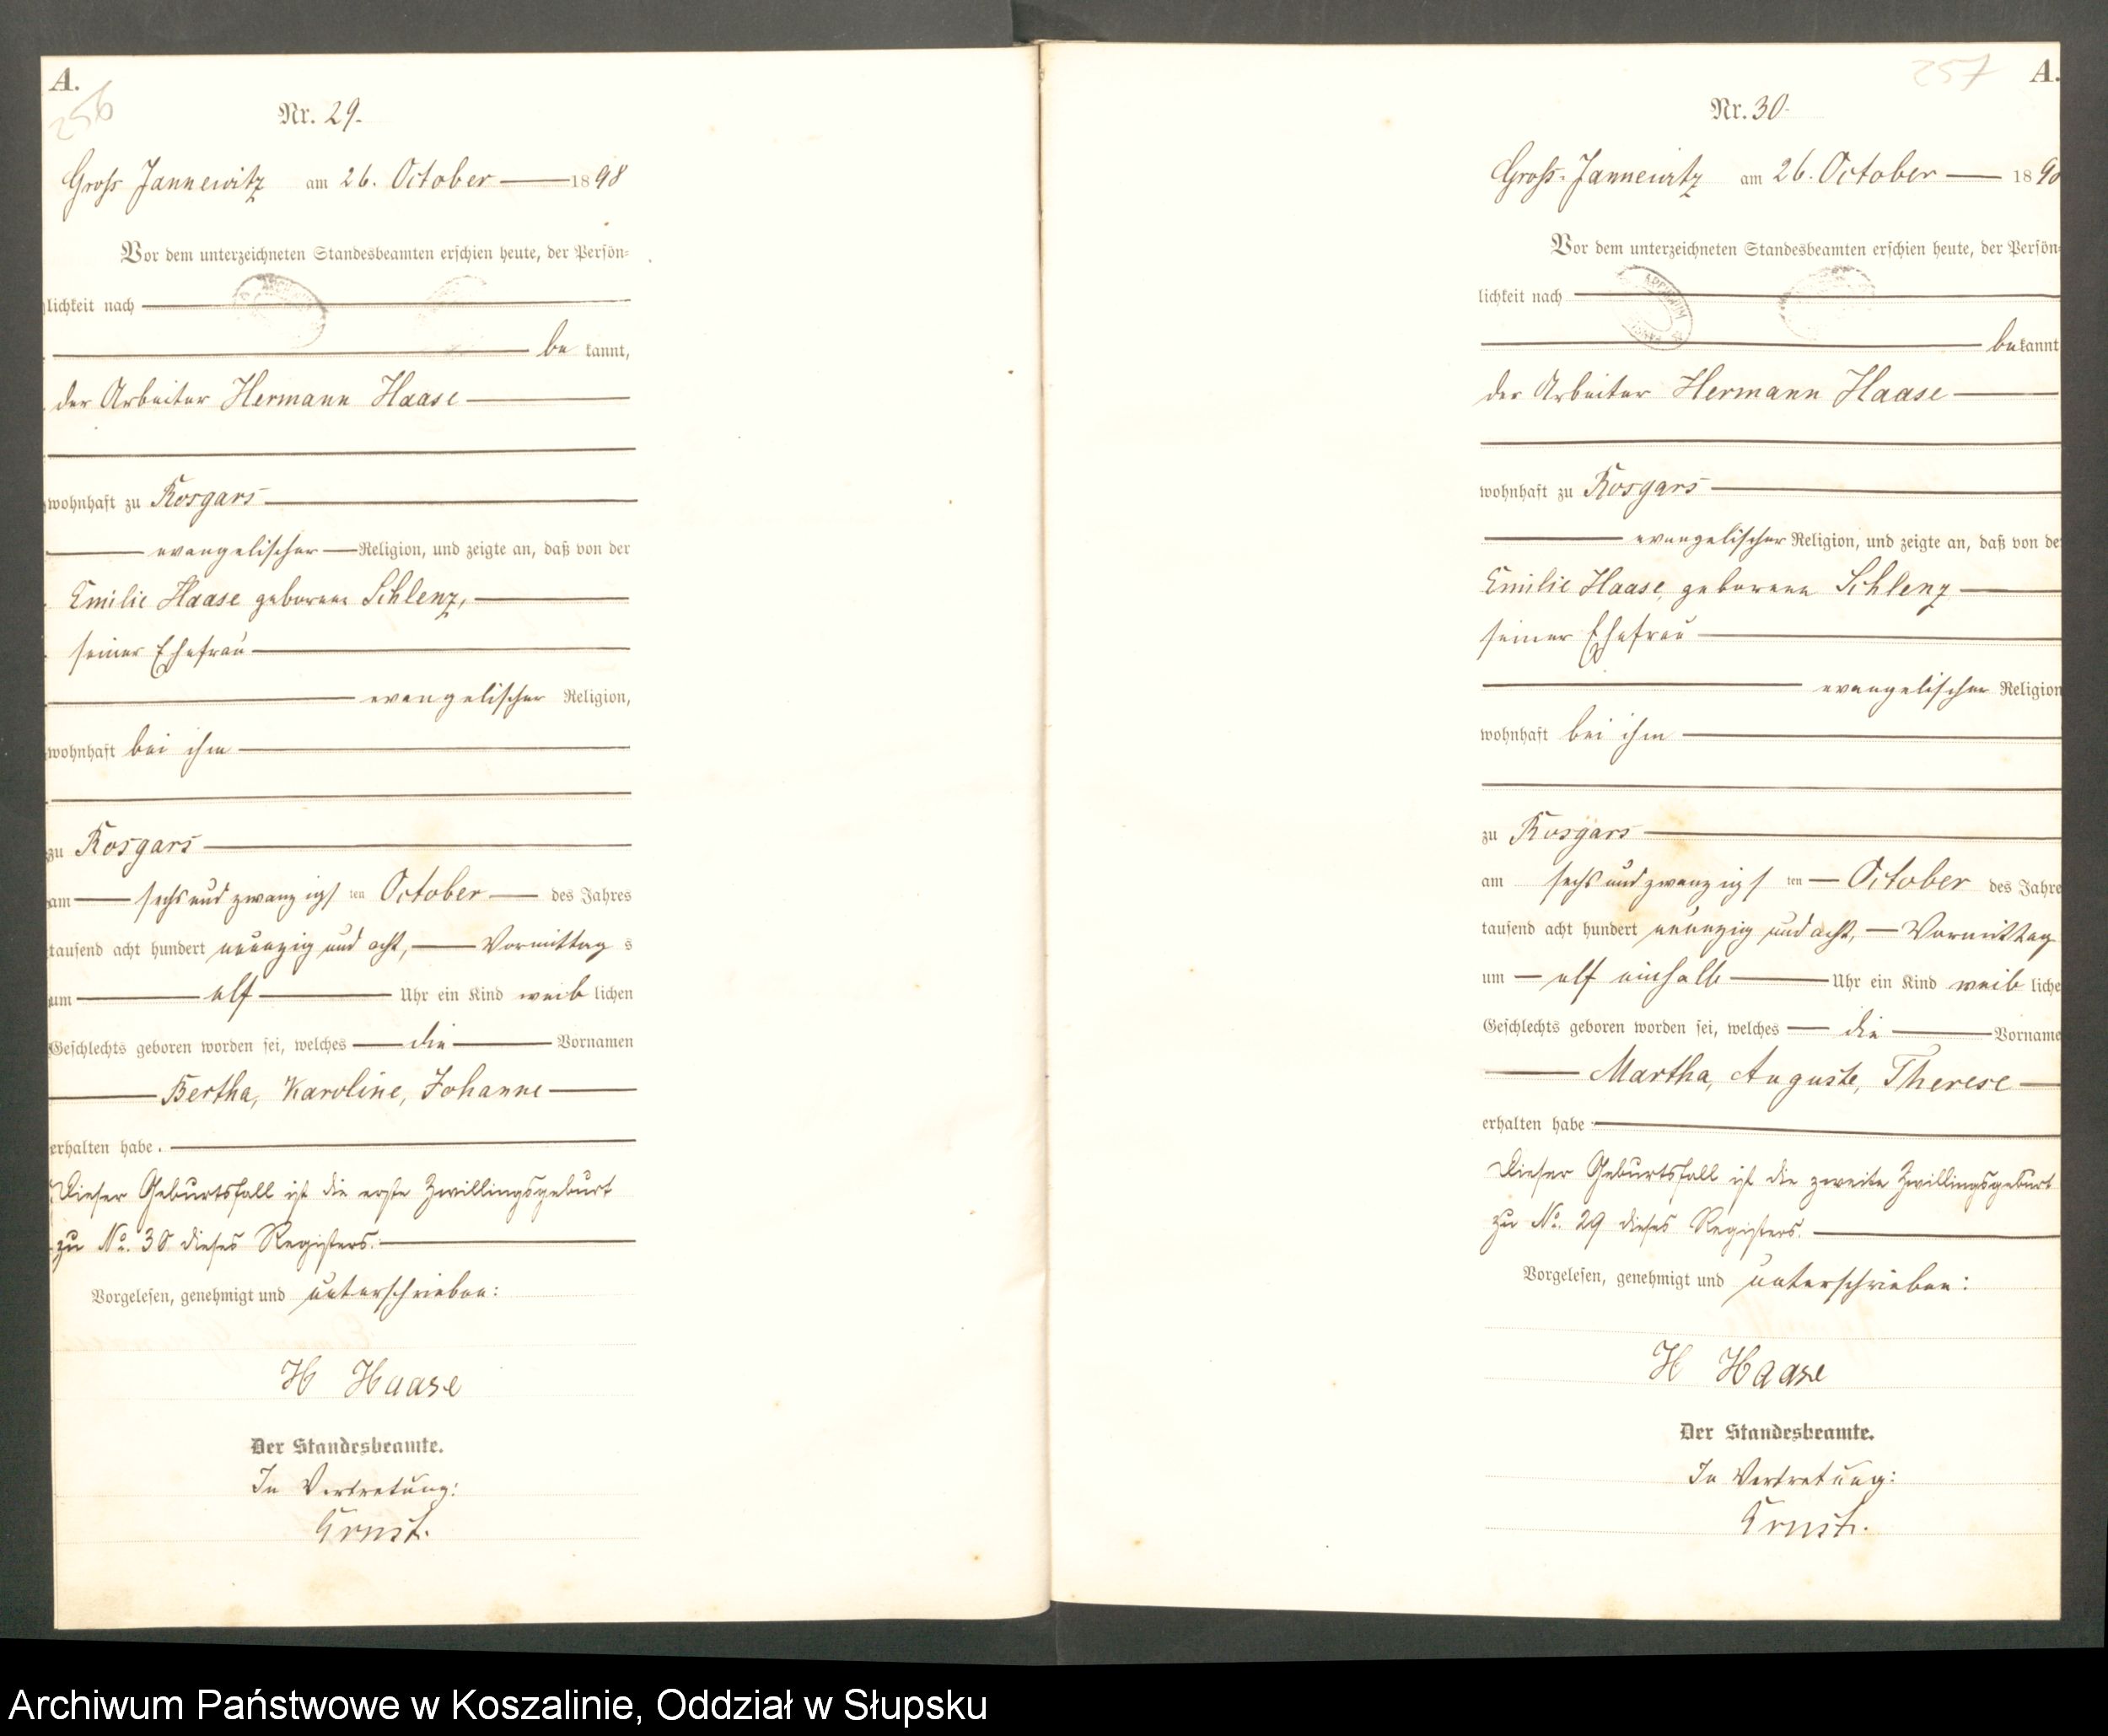 A.
256
Nr. 29.
Gross Jannewitz am 26. October 1898
Vor dem unterzeichneten Standesbeamten erschien heute, der Persön-
lichkeit nach
be kannt,
der Arbeiter Hermann Haase
wohnhaft zu Rosgars
evangelischer Religion, und zeigte an, daß von der
Emilie Haase geborene Schlenz,
seiner Ehefrau
evangelischer Religion,
wohnhaft bei ihm
zu Rosgars
am sechs und zwanzigs ten October des Jahres
tausend acht hundert neunzig und acht, Vormittag s
um elf Uhr ein Kind weib lichen
Geschlechts geboren worden sei, welches die Vornamen
Bertha, Karoline, Johanne
erhalten habe.
Dieser Geburtsfall ist die erste Zwillingsgeburt
zu No. 30 dieses Registers.
Vorgelesen, genehmigt und unterschrieben:
H Haase
Der Standesbeamte.
In Vertretung:
Ernst.
257
A.
Nr. 30.
Gross-Jannewitz am 26. October 1898
Vor dem unterzeichneten Standesbeamten erschien heute, der Persön-
lichkeit nach
be kannt
der Arbeiter Hermann Haase
wohnhaft zu Rosgars
evangelischer Religion, und zeigte an, daß von de
Emilie Haase, geborene Schlenz
seiner Ehefrau
evangelischer Religion
wohnhaft bei ihm
zu Rosgars
am sechs und zwanzigs ten October des Jahre
tausend acht hundert neunzig und acht, Vormittag
um elf einhalb Uhr ein Kind weib liche
Geschlechts geboren worden sei, welches die Vorname
Martha, Auguste, Therese
erhalten habe
Dieser Geburtsfall ist die zweite Zwillingsgeburt
zu No. 29 dieses Registers.
Vorgelesen, genehmigt und unterschrieben:
H Haase
Der Standesbeamte.
In Vertretung:
Ernst.
Archiwum Państwowe w Koszalinie, Oddział w Słupsku